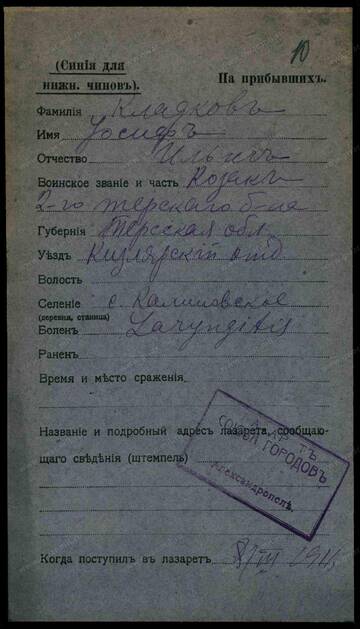 10
(Синія для
нижн. чиновъ).
На прибывшихъ.
Фамилія Кладковъ
Имя Іосифъ
Отчество Ильичъ
Воинское званіе и часть Козакъ
2-го терскаго б-на
Губернія Терская обл.
Уѣздъ Кизлярскій отд.
Волость
Селеніе с. Калиновское
(деревня, станица)
Боленъ Laryngitis
Раненъ
Время и мѣсто сраженія
Названіе и подробный адресъ лазарета, сообщаю-
щаго свѣдѣнія (штемпель)
СОЮЗЪ ГОРОДОВЪ
Александрополь.
Когда поступилъ въ лазаретъ